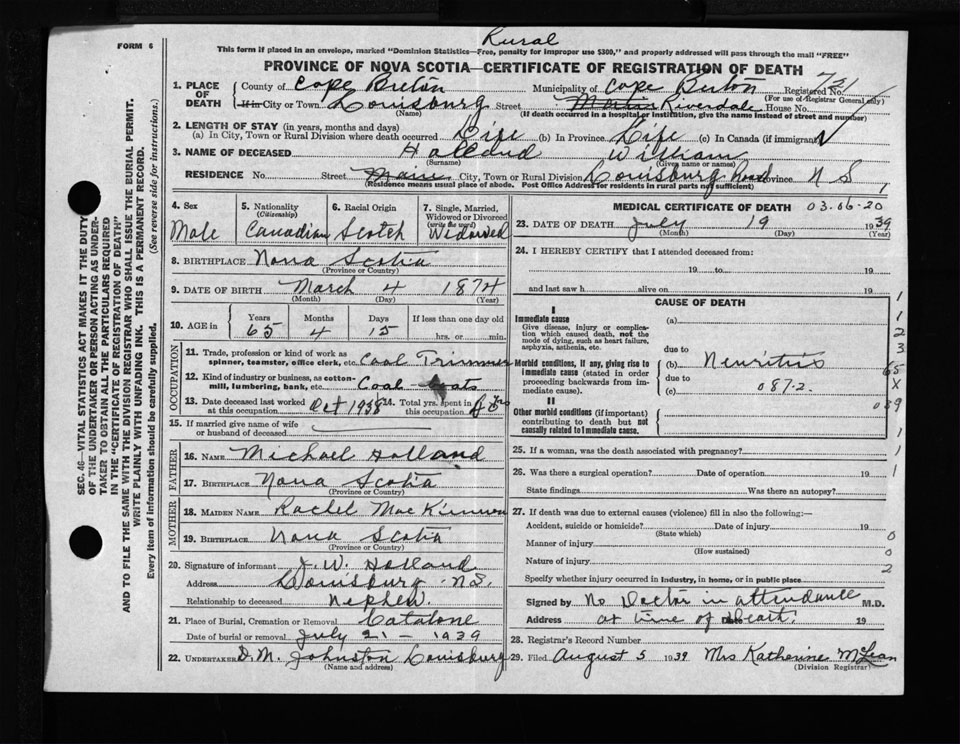 Rural
FORM 6
This form if placed in an envelope, marked "Dominion Statistics—Free, penalty for improper use $300," and properly addressed will pass through the mail "FREE"
PROVINCE OF NOVA SCOTIA—CERTIFICATE OF REGISTRATION OF DEATH
1. PLACE OF DEATH
County of Cape Breton Municipality of Cape Breton Registered No. 731
(For use of Registrar General only)
If in City or Town Louisburg Street Martin Riverdale House No.
(Name) (If death occurred in a hospital or institution, give the name instead of street and number)
2. LENGTH OF STAY (in years, months and days)
(a) In City, Town or Rural Division where death occurred Life (b) In Province Life (c) In Canada (if immigrant)
3. NAME OF DECEASED Holland William
(Surname) (Given name or names)
RESIDENCE No. Street Main City, Town or Rural Division Louisburg Road Province N S
(Residence means usual place of abode. Post Office Address for residents in rural parts not sufficient)
4. Sex Male
5. Nationality (Citizenship) Canadian
6. Racial Origin Scotch
7. Single, Married, Widowed or Divorced (write the word) Widowed
8. BIRTHPLACE Nova Scotia
(Province or Country)
9. DATE OF BIRTH March 4 1874
(Month) (Day) (Year)
10. AGE in Years Months Days If less than one day old
65 4 15 hrs. or min.
OCCUPATION
11. Trade, profession or kind of work as spinner, teamster, office clerk, etc. Coal Trimmer
12. Kind of industry or business, as cotton-mill, lumbering, bank, etc. Coal Boats
13. Date deceased last worked at this occupation Oct 1938 14. Total yrs. spent in this occupation
15. If married give name of wife or husband of deceased
FATHER
16. NAME Michael Holland
17. BIRTHPLACE Nova Scotia
(Province or Country)
MOTHER
18. MAIDEN NAME Rachel MacKinnon
19. BIRTHPLACE Nova Scotia
(Province or Country)
20. Signature of informant J. W. Holland
Address Louisburg N.S.
Relationship to deceased Nephew.
21. Place of Burial, Cremation or Removal Catalone
Date of burial or removal July 21 - 1939
22. UNDERTAKER D. M. Johnston Louisburg
(Name and address)
MEDICAL CERTIFICATE OF DEATH 03.06-20
23. DATE OF DEATH July 19 1939
(Month) (Day) (Year)
24. I HEREBY CERTIFY that I attended deceased from:
19 to 19
and last saw h alive on 19
CAUSE OF DEATH
I
Immediate cause (a)
Give disease, injury or complication which caused death, not the mode of dying, such as heart failure, asphyxia, asthenia, etc.
due to
Morbid conditions, if any, giving rise to immediate cause (stated in order proceeding backwards from immediate cause).
(b) Neuritis
due to
(c) 087-2.
II
Other morbid conditions (if important) contributing to death but not causally related to immediate cause.
25. If a woman, was the death associated with pregnancy?
26. Was there a surgical operation? Date of operation 19
State findings Was there an autopsy?
27. If death was due to external causes (violence) fill in also the following:—
Accident, suicide or homicide? Date of injury 19
(State which)
Manner of injury
(How sustained)
Nature of injury
Specify whether injury occurred in industry, in home, or in public place
Signed by No Doctor in attendance M.D.
Address at time of death. 19
28. Registrar's Record Number
29. Filed August 5 1939 Mrs Katherine McLean
(Division Registrar)
1
1
2
3
65
X
039
1
1
1
0
0
2
SEC. 46—VITAL STATISTICS ACT MAKES IT THE DUTY
OF THE UNDERTAKER OR PERSON ACTING AS UNDER-
TAKER TO OBTAIN ALL THE PARTICULARS REQUIRED
IN THE "CERTIFICATE OF REGISTRATION OF DEATH"
AND TO FILE THE SAME WITH THE DIVISION REGISTRAR WHO SHALL ISSUE THE BURIAL PERMIT.
WRITE PLAINLY WITH UNFADING INK. THIS IS A PERMANENT RECORD.
Every item of information should be carefully supplied. (See reverse side for instructions.)